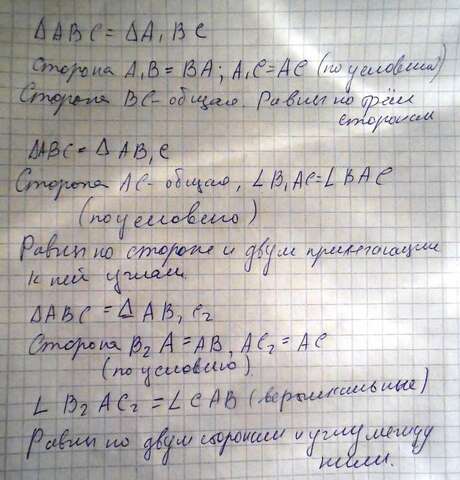 ΔABC = ΔA₁BC
Сторона A₁B = BA; A₁C = AC (по условию)
Сторона BC - общая. Равны по трём
сторонам
ΔABC = ΔAB₁C
Сторона AC - общая, ∠B₁AC = ∠BAC
(по условию)
Равны по стороне и двум прилегающим
к ней углам.
ΔABC = ΔAB₂C₂
Сторона B₂A = AB, AC₂ = AC
(по условию).
∠B₂AC₂ = ∠CAB (вертикальные)
Равны по двум сторонам и углу между
ними.